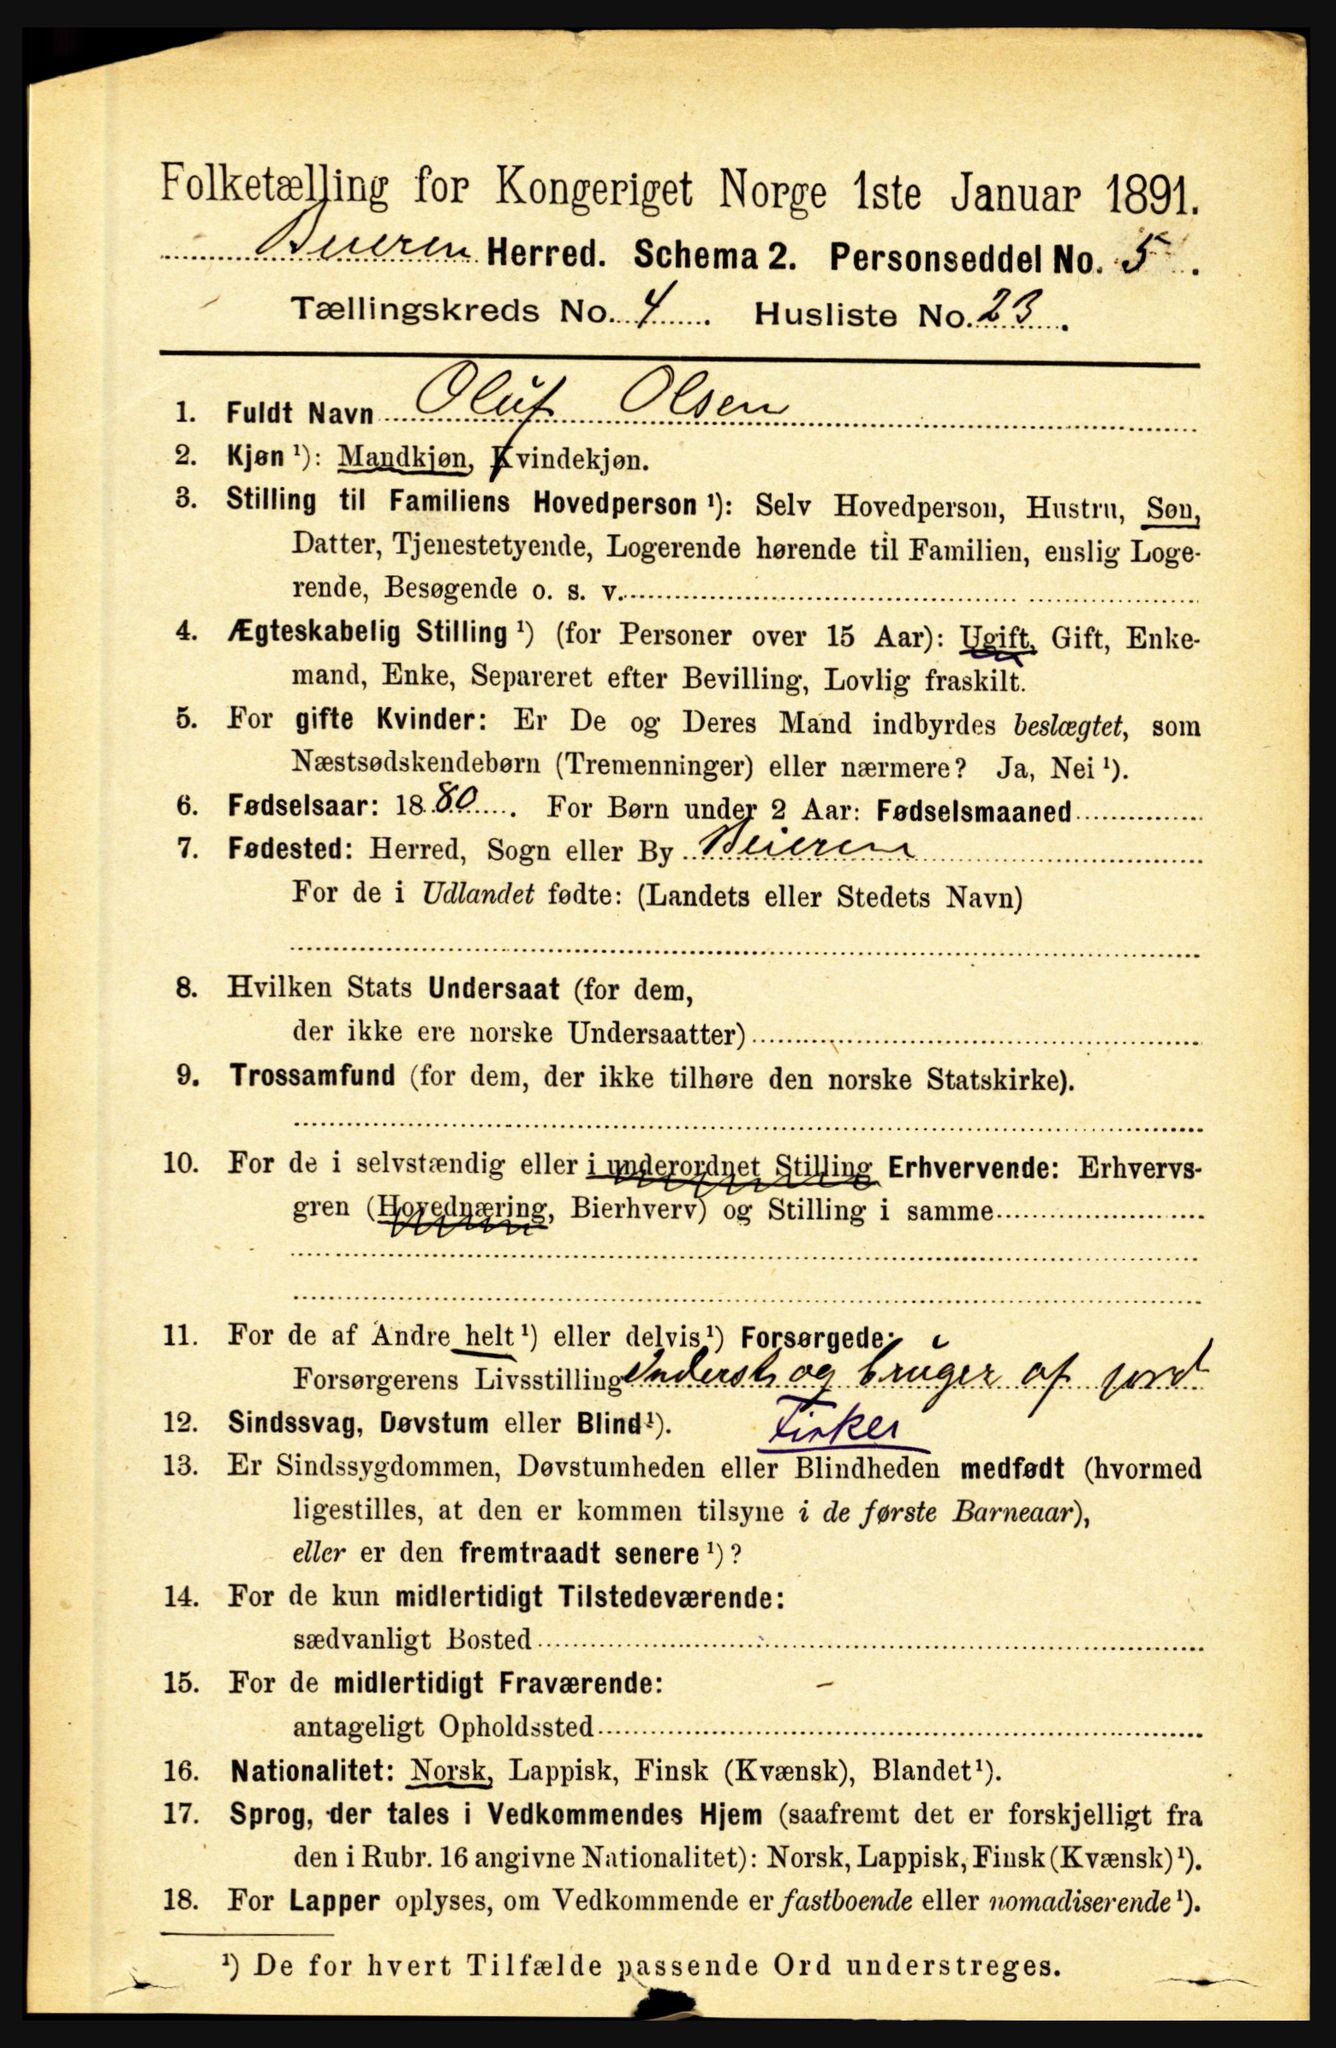 Folketælling for Kongeriget Norge 1ste Januar 1891.
Beieren Herred. Schema 2. Personseddel No. 5.
Tællingskreds No. 4. Husliste No. 23.
1. Fuldt Navn Oluf Olsen
2. Kjøn ¹): Mandkjøn, Kvindekjøn.
3. Stilling til Familiens Hovedperson ¹): Selv Hovedperson, Hustru, Søn,
Datter, Tjenestetyende, Logerende hørende til Familien, enslig Loge-
rende, Besøgende o. s. v.
4. Ægteskabelig Stilling ¹) (for Personer over 15 Aar): Ugift, Gift, Enke-
mand, Enke, Separeret efter Bevilling, Lovlig fraskilt.
5. For gifte Kvinder: Er De og Deres Mand indbyrdes beslægtet, som
Næstsødskendebørn (Tremenninger) eller nærmere? Ja, Nei ¹).
6. Fødselsaar: 1880. For Børn under 2 Aar: Fødselsmaaned
7. Fødested: Herred, Sogn eller By Beieren
For de i Udlandet fødte: (Landets eller Stedets Navn)
8. Hvilken Stats Undersaat (for dem,
der ikke ere norske Undersaatter)
9. Trossamfund (for dem, der ikke tilhøre den norske Statskirke).
10. For de i selvstændig eller i underordnet Stilling Erhvervende: Erhvervs-
gren (Hovednæring, Bierhverv) og Stilling i samme
11. For de af Andre helt ¹) eller delvis ¹) Forsørgede:
Forsørgerens Livsstilling og bruger af jord
12. Sindssvag, Døvstum eller Blind ¹). Fisker
13. Er Sindssygdommen, Døvstumheden eller Blindheden medfødt (hvormed
ligestilles, at den er kommen tilsyne i de første Barneaar),
eller er den fremtraadt senere ¹)?
14. For de kun midlertidigt Tilstedeværende:
sædvanligt Bosted
15. For de midlertidigt Fraværende:
antageligt Opholdssted
16. Nationalitet: Norsk, Lappisk, Finsk (Kvænsk), Blandet ¹).
17. Sprog, der tales i Vedkommendes Hjem (saafremt det er forskjelligt fra
den i Rubr. 16 angivne Nationalitet): Norsk, Lappisk, Finsk (Kvænsk) ¹).
18. For Lapper oplyses, om Vedkommende er fastboende eller nomadiserende ¹).
¹) De for hvert Tilfælde passende Ord understreges.